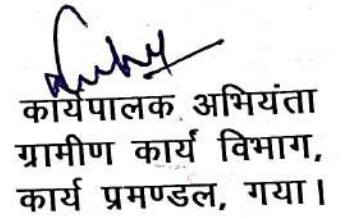 कार्यपालक अभियंता
ग्रामीण कार्य विभाग,
कार्य प्रमण्डल, गया।